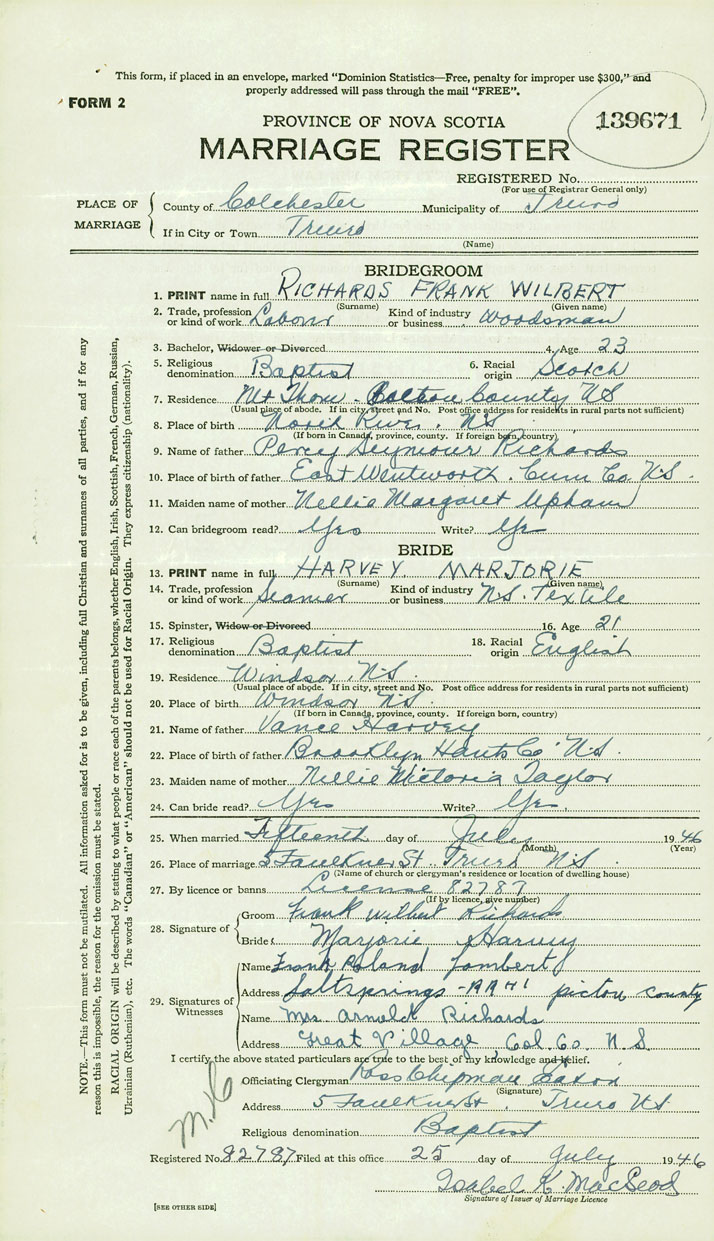 This form, if placed in an envelope, marked “Dominion Statistics—Free, penalty for improper use $300,” and
properly addressed will pass through the mail “FREE”.
FORM 2
139671
PROVINCE OF NOVA SCOTIA
MARRIAGE REGISTER
REGISTERED No.
(For use of Registrar General only)
PLACE OF MARRIAGE
County of Colchester Municipality of Truro
If in City or Town Truro
(Name)
BRIDEGROOM
1. PRINT name in full RICHARDS FRANK WILBERT
(Surname) (Given name)
2. Trade, profession or kind of work Labour Kind of industry or business Woodsman
3. Bachelor, Widower or Divorced 4. Age 23
5. Religious denomination Baptist 6. Racial origin Scotch
7. Residence Mt Thom - County NS
(Usual place of abode. If in city, street and No. Post office address for residents in rural parts not sufficient)
8. Place of birth North River, NS
(If born in Canada, province, county. If foreign born, country)
9. Name of father Percy Seymour Richards
10. Place of birth of father East Wentworth. Cum Co. N.S.
11. Maiden name of mother Nellie Margaret Upham
12. Can bridegroom read? Yes Write? Yes
BRIDE
13. PRINT name in full HARVEY MARJORIE
(Surname) (Given name)
14. Trade, profession or kind of work Seamer Kind of industry or business N.S. Textile
15. Spinster, Widow or Divorced 16. Age 21
17. Religious denomination Baptist 18. Racial origin English
19. Residence Windsor, N.S.
(Usual place of abode. If in city, street and No. Post office address for residents in rural parts not sufficient)
20. Place of birth Windsor N.S.
(If born in Canada, province, county. If foreign born, country)
21. Name of father Vance Harvey
22. Place of birth of father Brooklyn Hants Co. N.S.
23. Maiden name of mother Nellie Victoria Taylor
24. Can bride read? Yes Write? Yes
25. When married Fifteenth day of July 1946
(Month) (Year)
26. Place of marriage 5 Faulkner St. Truro N.S.
(Name of church or clergyman's residence or location of dwelling house)
27. By licence or banns License 82787
(If by licence, give number)
28. Signature of
Groom Frank Wilbert Richards
Bride Marjorie Harvey
29. Signatures of Witnesses
Name Frank Roland Lombert
Address Saltsprings - RR #1 pictou county
Name Mrs. Arnold Richards
Address Great Village, Col. Co. N.S.
I certify the above stated particulars are true to the best of my knowledge and belief.
Officiating Clergyman Ross Chipman Eaton
(Signature)
Address 5 Faulkner St. Truro NS
Religious denomination Baptist
Registered No. 82787 Filed at this office 25 day of July 1946
Isabel K. MacLeod
Signature of Issuer of Marriage Licence
[SEE OTHER SIDE]
NOTE.—This form must not be mutilated. All information asked for is to be given, including full Christian and surnames of all parties, and if for any
reason this is impossible, the reason for the omission must be stated.
RACIAL ORIGIN will be described by stating to what people or race each of the parents belongs, whether English, Irish, Scottish, French, German, Russian,
Ukrainian (Ruthenian), etc. The words “Canadian” or “American” should not be used for Racial Origin. They express citizenship (nationality).